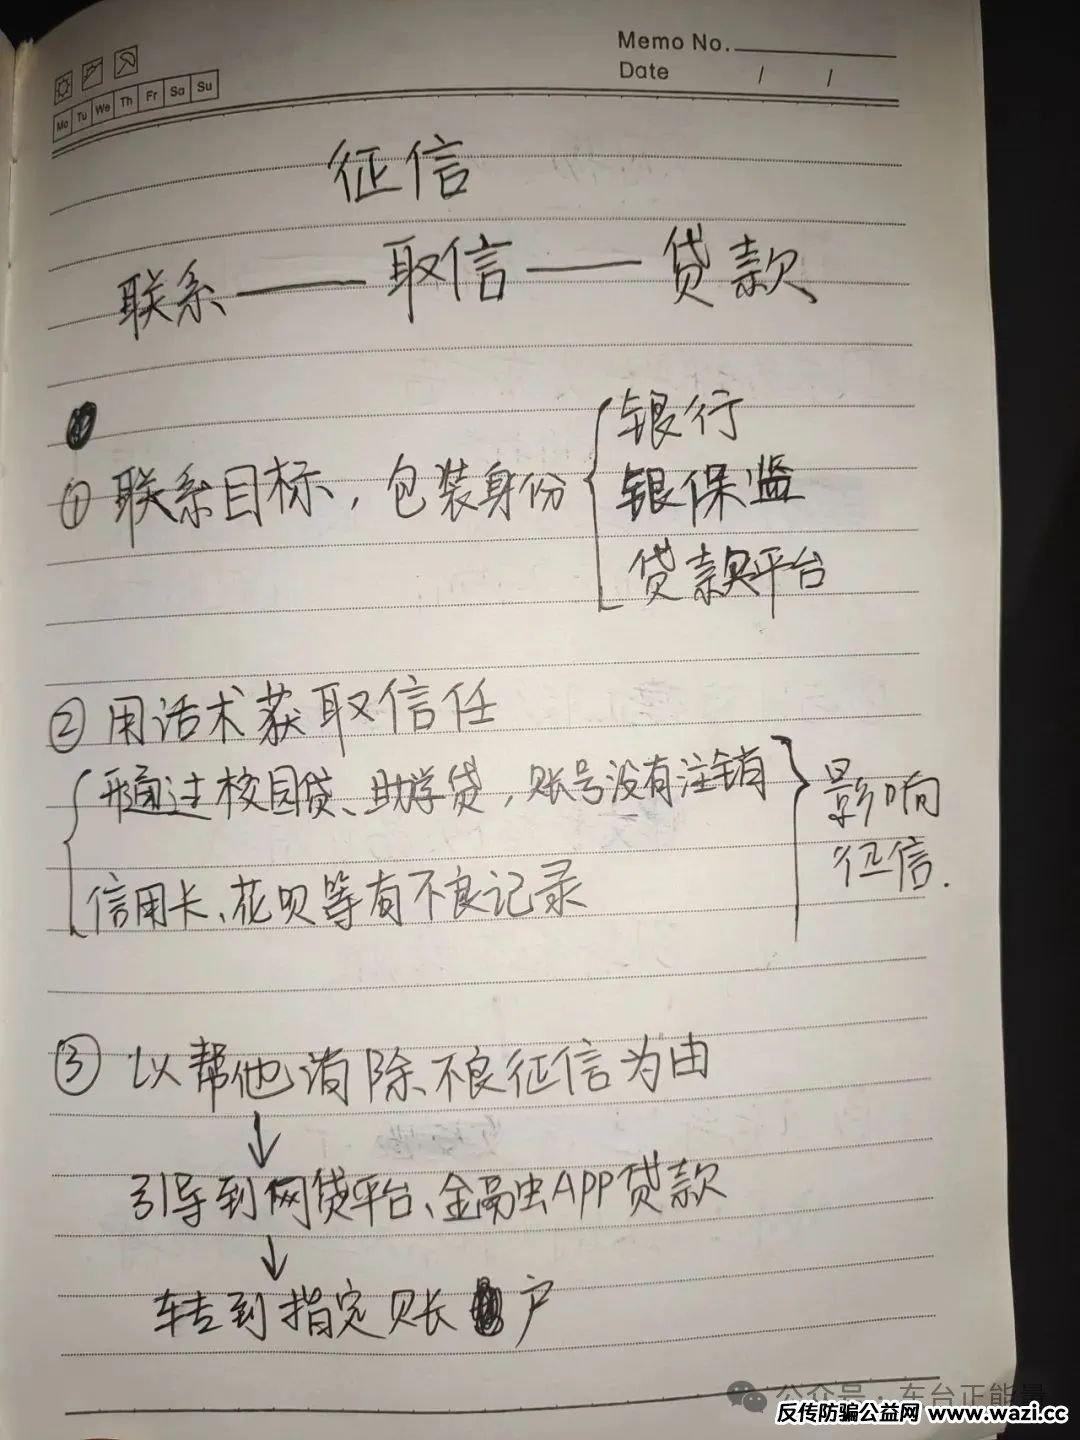 Memo No.
Date / /
Mo Tu We Th Fr Sa Su
征信
联系——取信——贷款
①联系目标，包装身份
银行
银保监
贷款平台
②用话术获取信任
通过校园贷、助学贷，账号没有注销
信用卡、花呗等有不良记录
影响
征信.
③以帮他消除不良征信为由
↓
引导到网贷平台、金融APP贷款
↓
转到指定账户
公众号·东台正能量
反传防骗公益网 www.wazi.cc